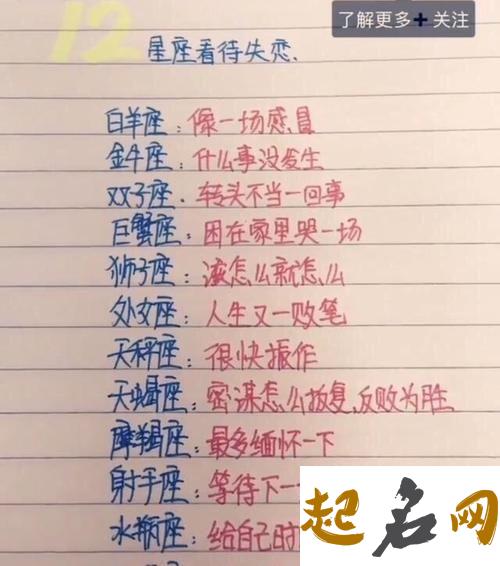 了解更多+关注
12
星座看待失恋.
白羊座：像一场感冒
金牛座：什么事没发生
双子座：转头不当一回事
巨蟹座：困在家里哭一场
狮子座：该怎么就怎么
处女座：人生又一败笔
天秤座：很快振作
天蝎座：密谋怎么报复、反败为胜
摩羯座：最多缅怀一下
射手座：等待下一
水瓶座：给自己时
起名网